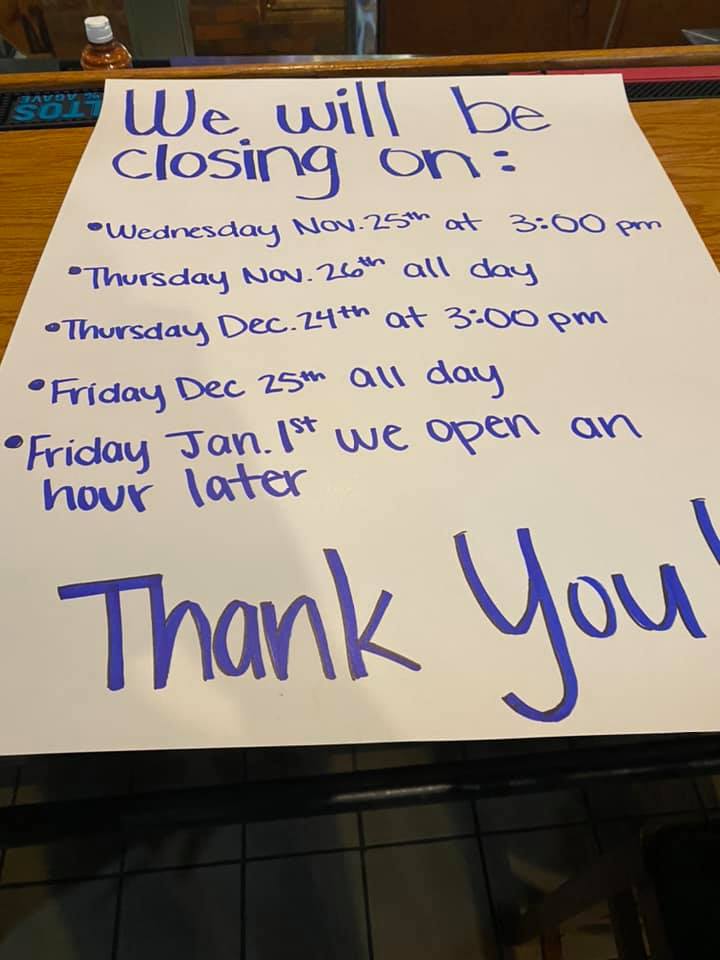 ALTOS
% AGAVE
We will be
closing on:
•Wednesday Nov. 25th at 3:00 pm
•Thursday Nov. 26th all day
•Thursday Dec. 24th at 3:00 pm
•Friday Dec 25th all day
•Friday Jan. 1st we open an
hour later
Thank You!